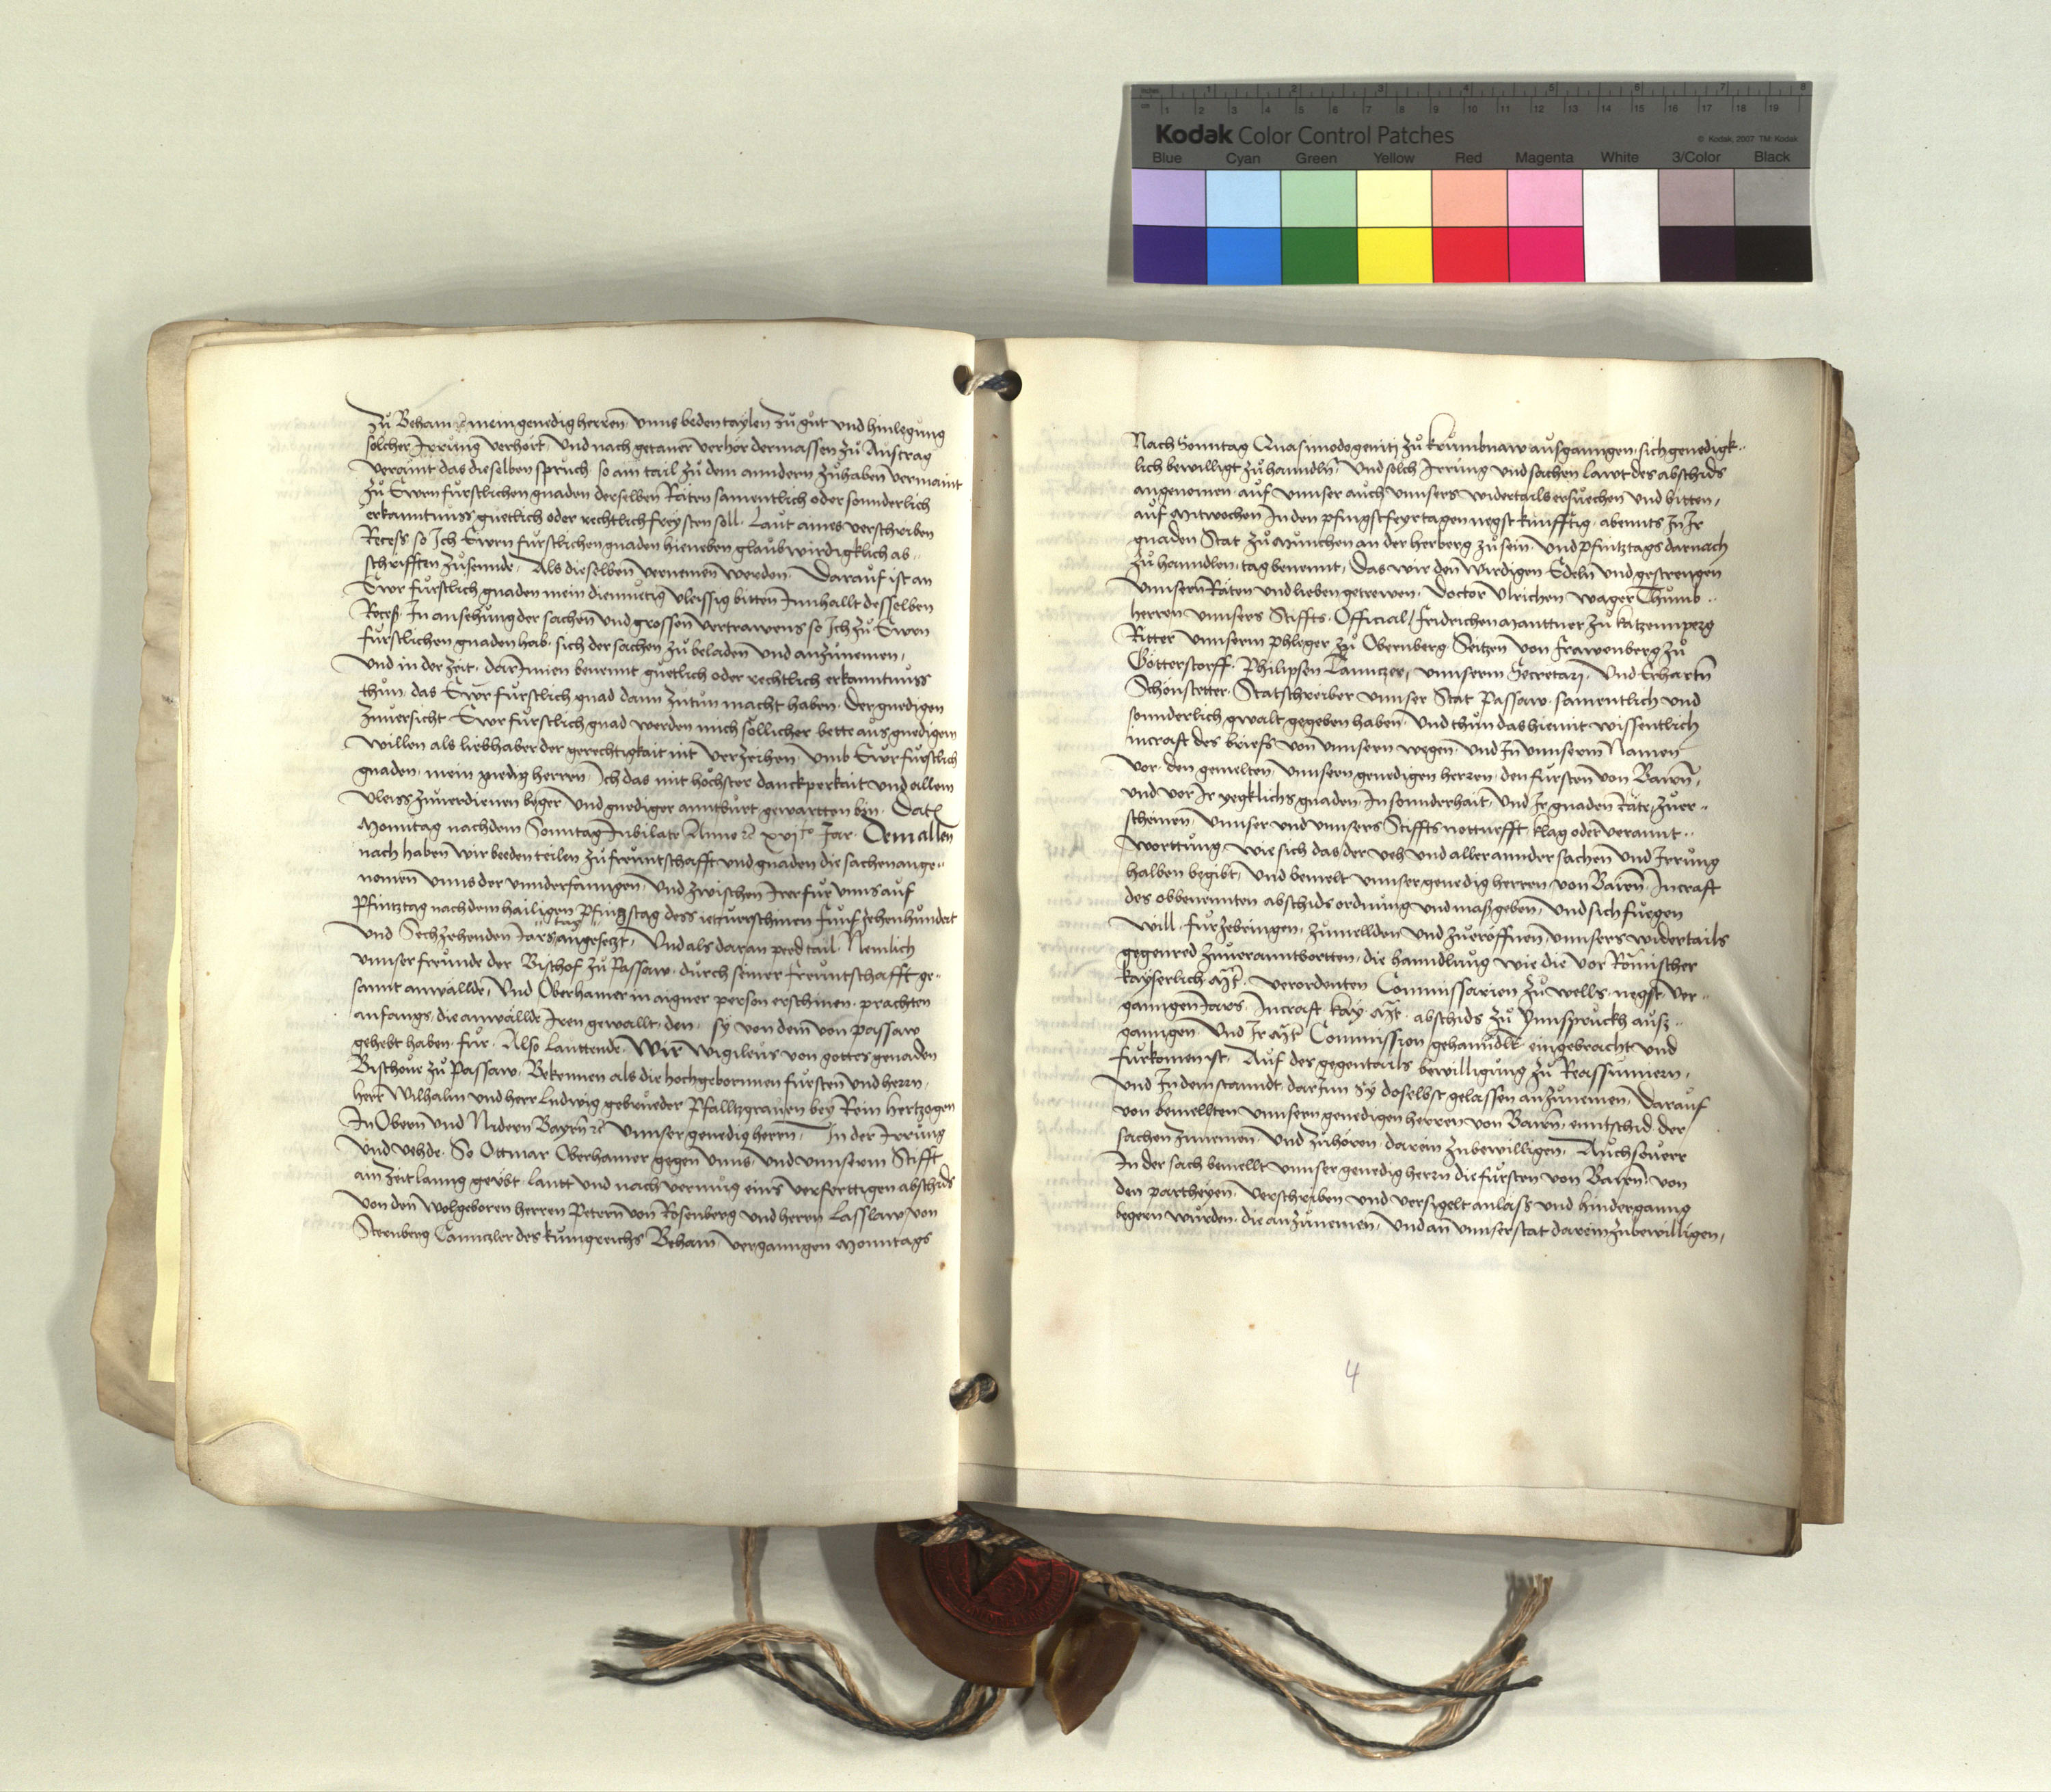 Inches 1 2 3 4 5 6 7 8
cm 1 2 3 4 5 6 7 8 9 10 11 12 13 14 15 16 17 18 19
Kodak Color Control Patches © Kodak, 2007 TM: Kodak
Blue Cyan Green Yellow Red Magenta White 3/Color Black
Zů Beham mein genedig herren, unns beden taylen zů gůt und hinlegung
solcher Irrung verhört, Und nach getaner verhör dermassen zů Austrag
veraint das dieselben spruch so ain tail zů dem anndern zůhaben vermaint
Zů Ewrn furstlichen gnaden derselben Räten samentlich oder sonnderlich
erkanntnuss guetlich oder rechtlich freysten soll. Laut aines verschriben
Recess so Ich Ewrn furstlichen gnaden hieneben glaubwirdigklich ab„
schrifften zůsennde, Als dieselben vernemen werden. Darauf ist an
Ewr fürstlich gnaden mein diemuetig vleissig bitten Innhallt desselben
Recess. In ansehung der sachen und grossen vertrawens so Ich zů Ewrn
furstlichen gnaden hab. sich der sachen zů beladen und anzůnemen,
Und in der Zeit. darInnen benennt guetlich oder rechtlich erkanntnuss
thun. das Ewr furstlich gnad dann zutun macht haben. Der gnedigen
Zuversicht Ewr furstlich gnad werden mich söllicher bette aus gnedigem
willen als liebhaber der gerechtigkait nit verzeihen, Umb Ewr furstlich
gnaden, mein gnedig herren, Ich das mit höchster danckperkait und allem
vleiss zuverdienen beger und gnediger anntburt gewartten bin. Dat
Monntag nach dem Sonntag Jubilate Anno xvito Jar. Dem allen
nach haben wir beeden teilen zů freuntschafft und gnaden die sachen ange„
nomen unns der unnderfanngen, und zwischen Irer fur unns auf
Pfintztag nach dem hailigen Pfingstag dess ietzuerschinen Funfzehenhundert
tag
Und Sechzehenden Jars angesetzt, Und als daran peed tail Nemlich
unnser freunde der Bischof zů Passaw. durch seiner freuntschafft ge„
samt anwällde, Und Oberhamer in aigner person erschinen. prachten
anfangs, die anwällde Iren gewallt, den, sy von dem von passaw
gehebt haben fur. Also lauttende. Wir Wigileus von gottes genaden
Bischove zů Passaw. Bekennen als die hochgebornnen fürsten und herrn,
herr Wilhalm und herr Ludwig gebrueder Pfalltzgraven bey Rein hertzogen
In Obern und Nidern Bayrn unnser genedig herrn, In der Irrung
Und vehde. So Ottmar Oberhamer gegen unns, und unnserm Stifft
ain zeit lanng geübt, lautt und nach vermug eins verferttigen abschids
von den wolgeboren herren Petern von Rosenberg und herrn Lasslaw von
Sternberg Canntzler des kunigreichs Beham, vergangen Monntags
Nach Sonntag Quasimodogeniti zů krumbnaw ausgangen, sich genedigk„
lich bewilligt zů hanndln, Und solch Irrung und sachen lawt des abschids
angenomen auf unnser auch unnsers widertails ersuechen und bitten,
auf Mitwochen In den pfingstfeyrtagen negst kunfftig. abennts In Ir
gnaden Stat zů Munchen an der herberg zů sein. Und Pfintztags darnach
Zů hanndlen, tag benennt, Das wir den Wirdigen Edeln und gestrengen
unnsern Räten und lieben getrewen. Doctor Ulrichen Wager Thumb„
herren unnsers Stiffts. Official Fridrichen Manttner zů katzennperg
Ritter unnserm phleger zů Obernberg Seitzen von Frawenberg zů
Götterstorff. Philipsen Lanntzer, unnserm Secretari. Und Erhartn
Schönstetter. Statschreiber unnser Stat Passaw. samentlich und
sonnderlich gwalt gegeben haben, Und thun das hiemit wissentlich
incraft des briefs von unnsern wegen, Und In unnserm Namen
Vor den gemelten, unnsern genedigen herren, den fursten von Bairn,
und vor Ir yegklichs gnaden, In sonnderhait, Und Ir gnaden Räte, zůer„
scheinen, unnser und unnsers Stiffts notturfft, klag oder verannt„
worttung, wie sich das der veh und aller annder sachen und Irrung
halben begibt, Und bemelt unnser genedig herren von Bairn. Incraft
des obbenennten abschids ordnung und mass geben, Und sich fuegen
Will, fürzebringen, zumellden und zueröffnen, unnsers widertails
gegenred zuverannttwortten, die hanndlung wie die vor Römischer
kayserlich Mt. verordenten Commissarien zů wells. negst ver„
ganngen Jars. Incraft kay Mt. abschids zů Ynnspruckh ausz„
ganngen. Und Ir Mt Commission gehanndlt eingebracht und
furkomen ist, Auf des gegentails bewilligung zů Reassumiern,
Und In dem stanndt, darInn sy doselbst gelassen anzůnemen, Darauf
von bemellten unnsern genedigen herren von Bairn, enntschid der
sachen zunemen, Und zůhören, darein zubewilligen, Auch sover
In der sach bemellt unnser genedig herrn die fursten von Bairn, von
den partheyen, verschriben und versigelt anlass und hindergannng
begern wurden, die anzunemen, Und an unnser stat darein zubewilligen,
4